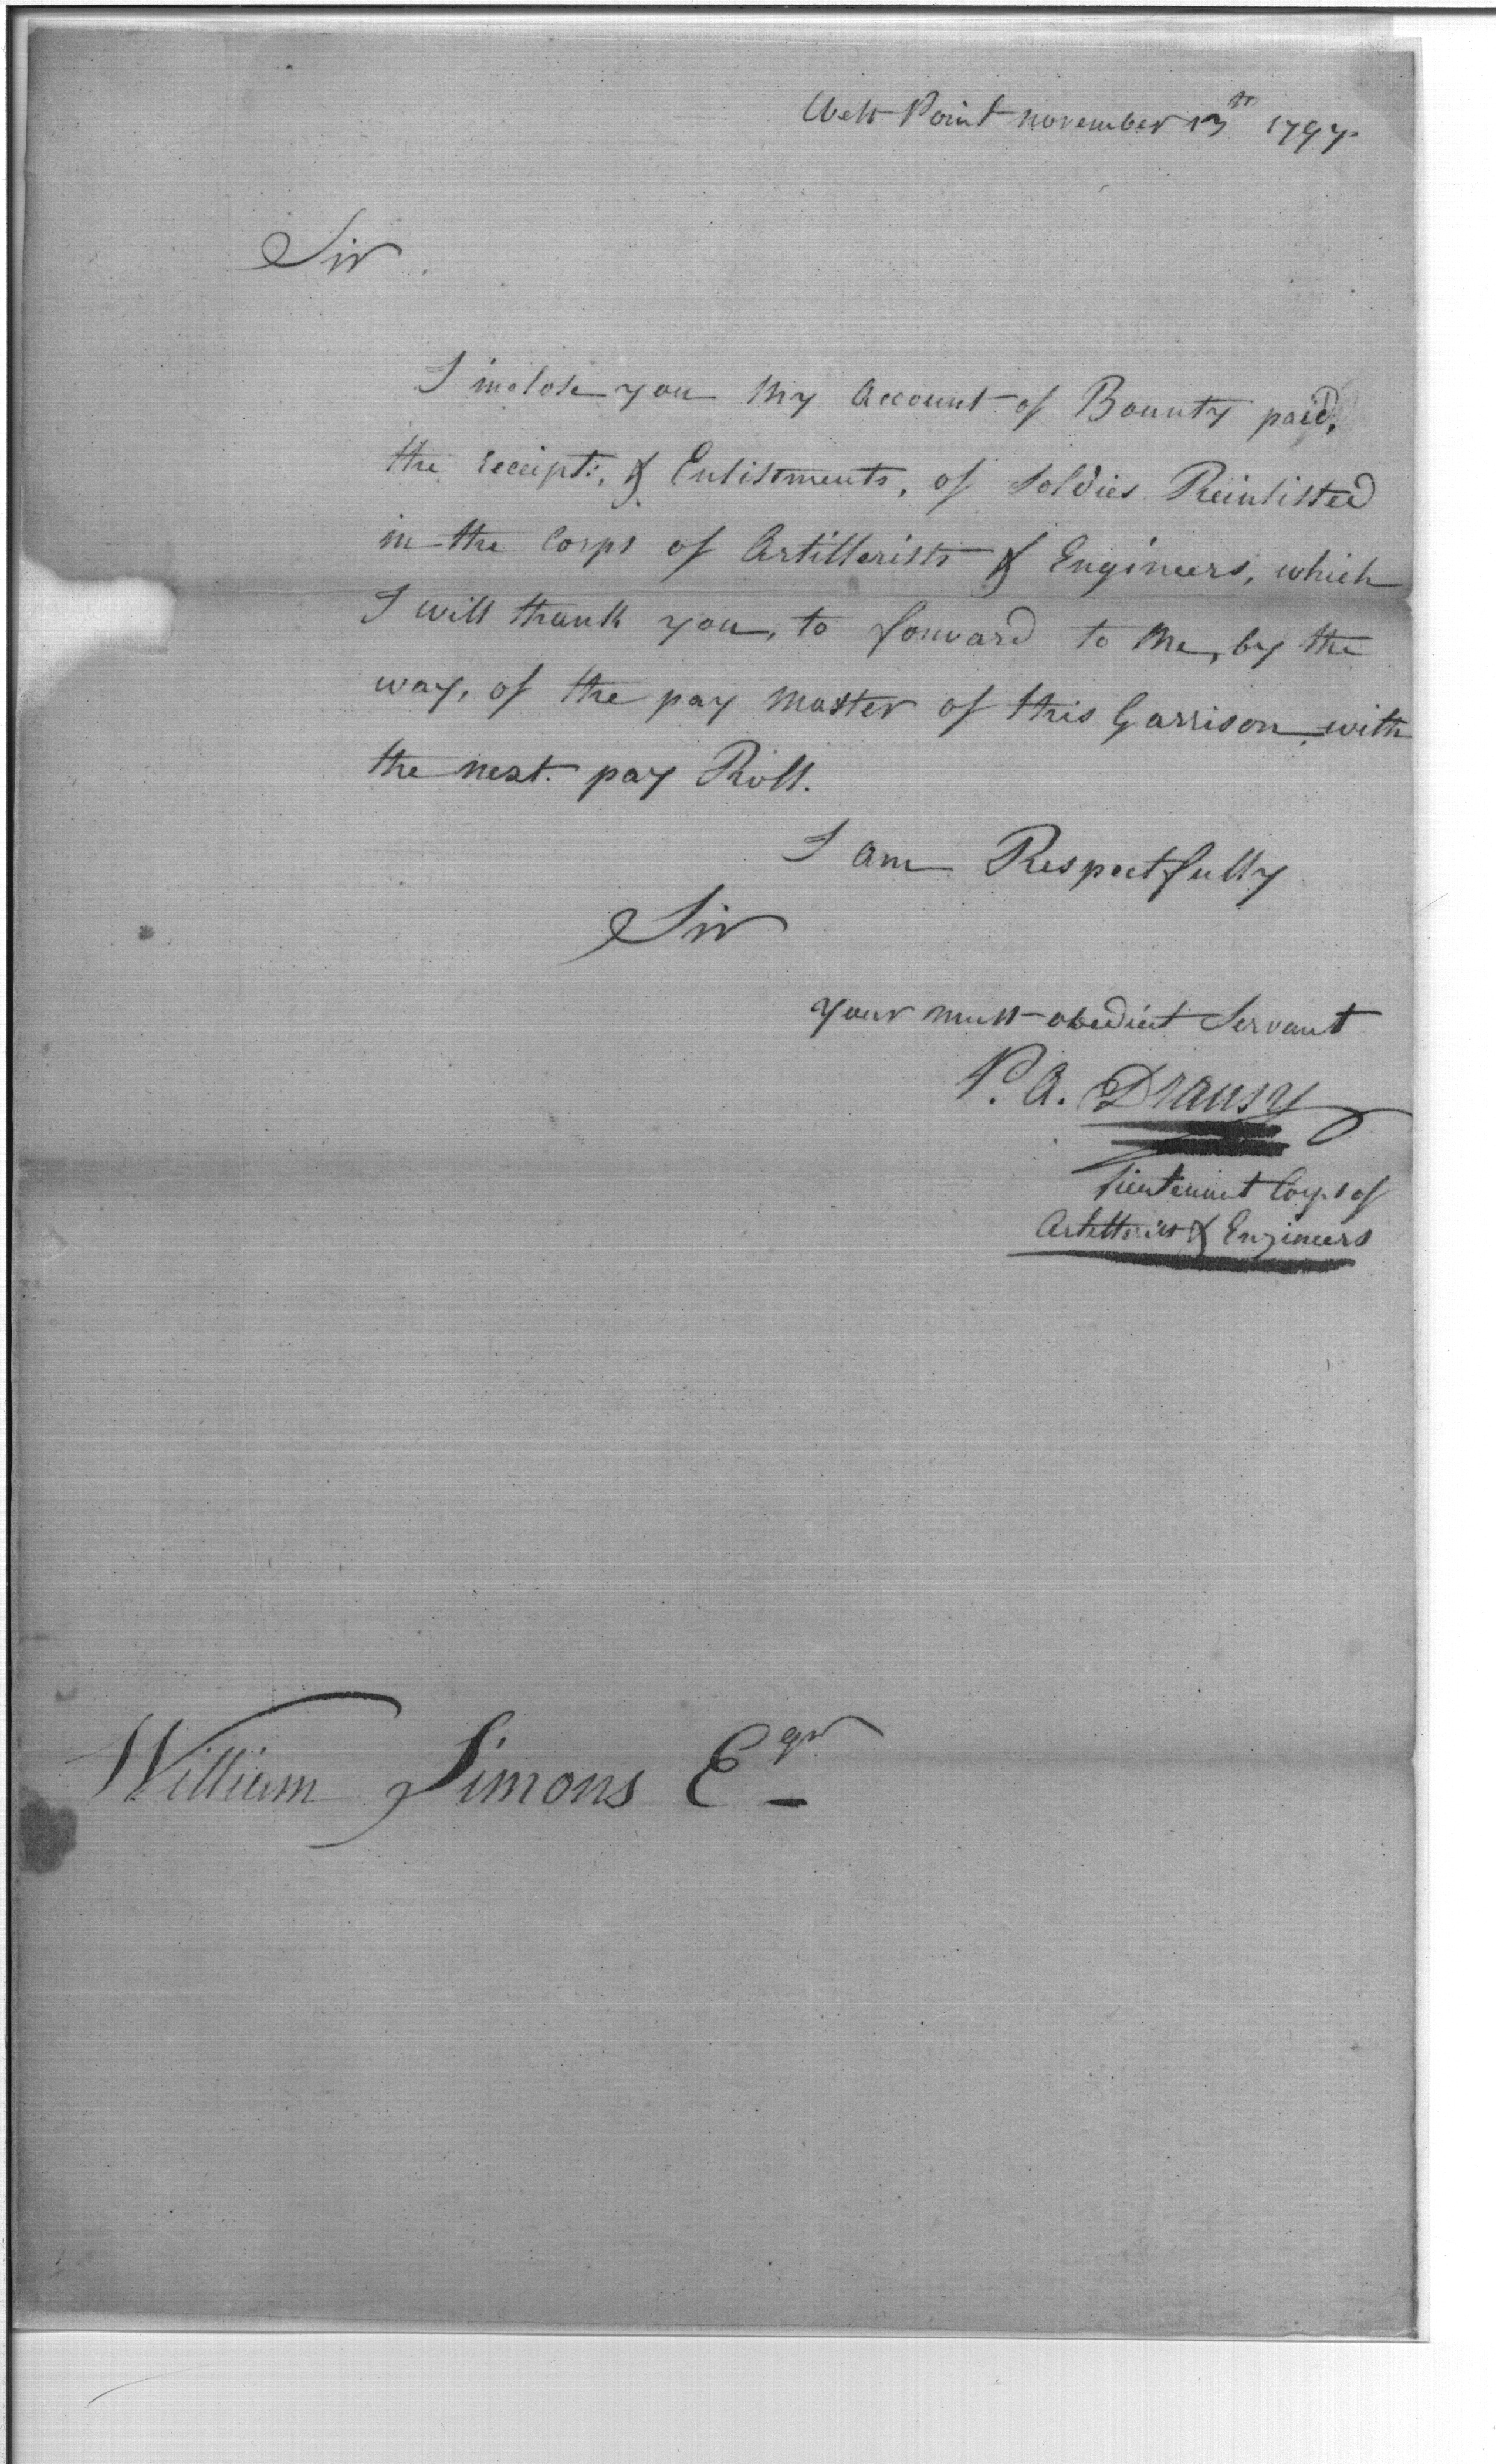 West Point november 13th 1797.
Sir
I inclose you My Account of Bounty paid,
the receipts, & Enlistments, of Soldies Reinlisted
in the Corps of Artillerists & Engineers, which
I will thank you, to forward to Me, by the
way, of the pay Master of this Garrison, with
the next pay Roll.
I am Respectfully
Sir
your must obedient Servant
P. A. Dransy
Lieutenant Corps of
Artillerist & Engineers
William Simons Eqr